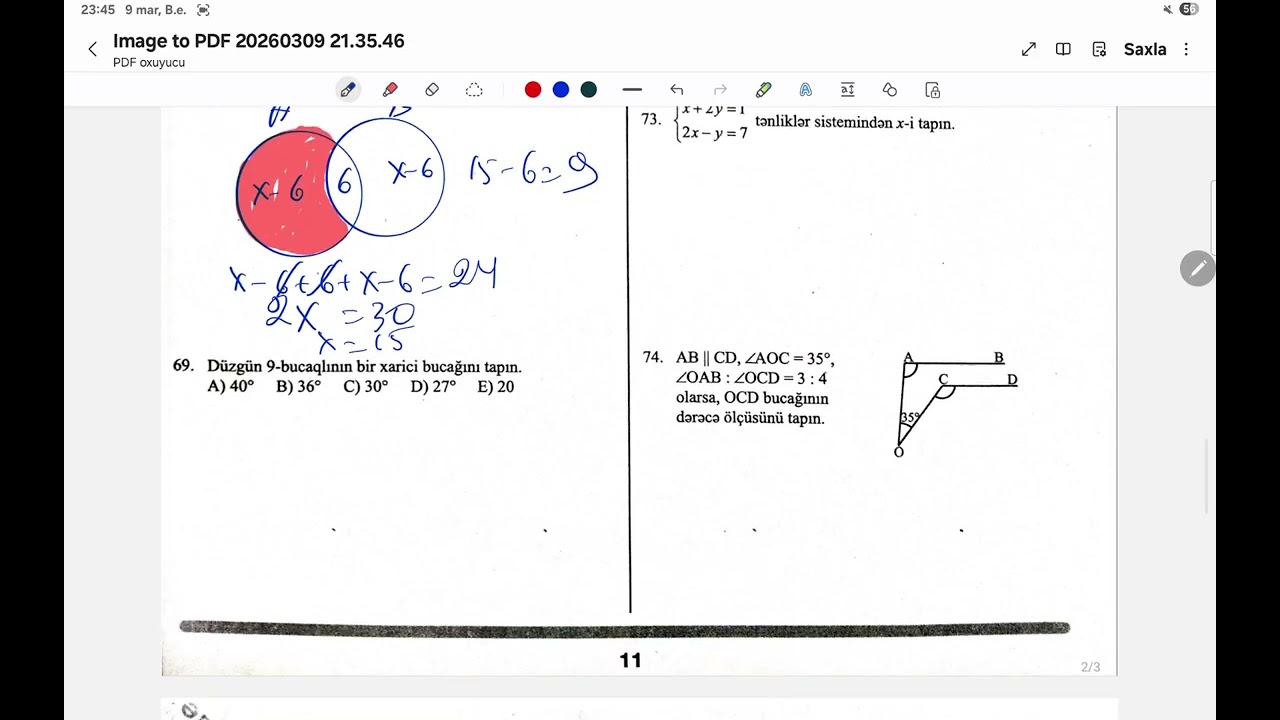 23:45 9 mar, B.e.
56
Image to PDF 20260309 21.35.46
PDF oxuyucu
Saxla
A B
x-6 6 x-6 15-6=9
x-6+6+x-6=24
2x =30
x=15
69. Düzgün 9-bucaqlının bir xarici bucağını tapın.
A) 40° B) 36° C) 30° D) 27° E) 20
73. {x+2y=1
2x−y=7 tənliklər sistemindən x-i tapın.
74. AB || CD, ∠AOC = 35°,
∠OAB : ∠OCD = 3 : 4
olarsa, OCD bucağının
dərəcə ölçüsünü tapın.
A B
C D
35°
O
11
2/3